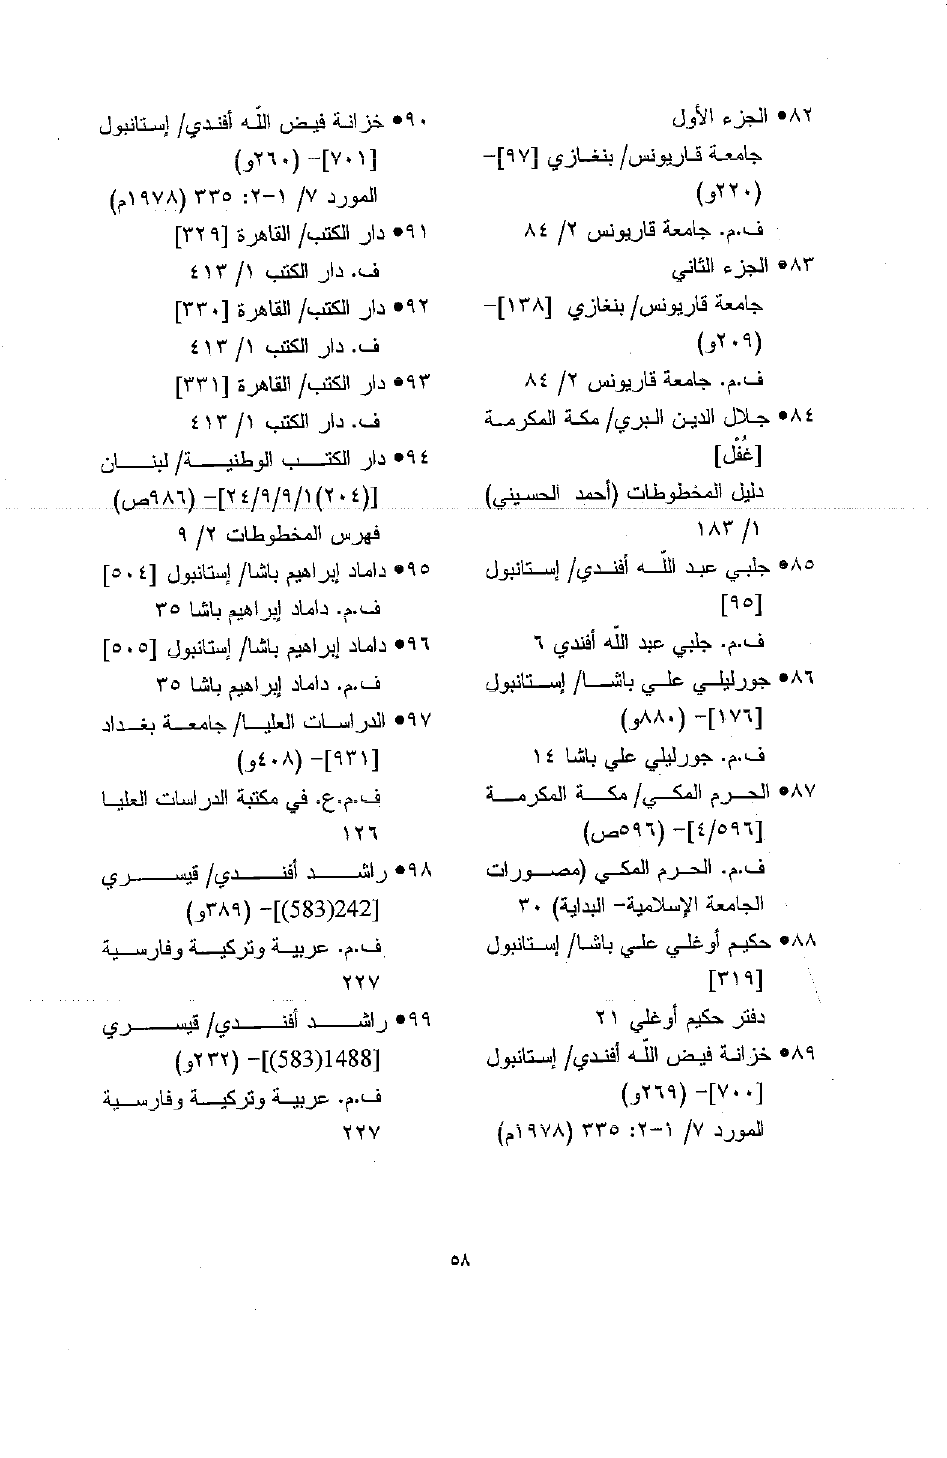 ٨٢• الجزء الأول
جامعة قاريونس/ بنغازي [٩٧]-
(٢٢٠و)
ف.م. جامعة قاريونس ٢/ ٨٤
٨٣• الجزء الثاني
جامعة قاريونس/ بنغازي [١٣٨]-
(٢٠٩و)
ف.م. جامعة قاريونس ٢/ ٨٤
٨٤• جلال الدين البري/ مكة المكرمة
[غُفْل]
دليل المخطوطات (أحمد الحسيني)
١/ ١٨٣
٨٥• جلبي عبد اللّه أفندي/ إستانبول
[٩٥]
ف.م. جلبي عبد اللّه أفندي ٦
٨٦• جورليلي علي باشا/ إستانبول
[١٧٦]- (٨٨٠و)
ف.م. جورليلي علي باشا ١٤
٨٧• الحرم المكي/ مكة المكرمة
[٤/٥٩٦]- (٥٩٦ص)
ف.م. الحرم المكي (مصورات
الجامعة الإسلامية- البداية) ٣٠
٨٨• حكيم أوغلي علي باشا/ إستانبول
[٣١٩]
دفتر حكيم أوغلي ٢١
٨٩• خزانة فيض اللّه أفندي/ إستانبول
[٧٠٠]- (٢٦٩و)
المورد ٧/ ١-٢: ٣٣٥ (١٩٧٨م)
٩٠• خزانة فيض اللّه أفندي/ إستانبول
[٧٠١]- (٢٦٠و)
المورد ٧/ ١-٢: ٣٣٥ (١٩٧٨م)
٩١• دار الكتب/ القاهرة [٣٢٩]
ف. دار الكتب ١/ ٤١٣
٩٢• دار الكتب/ القاهرة [٣٣٠]
ف. دار الكتب ١/ ٤١٣
٩٣• دار الكتب/ القاهرة [٣٣١]
ف. دار الكتب ١/ ٤١٣
٩٤• دار الكتب الوطنية/ لبنان
[(٢٠٤)٢٤/٩/٩/١]- (٩٨٦ص)
فهرس المخطوطات ٢/ ٩
٩٥• داماد إبراهيم باشا/ إستانبول [٥٠٤]
ف.م. داماد إبراهيم باشا ٣٥
٩٦• داماد إبراهيم باشا/ إستانبول [٥٠٥]
ف.م. داماد إبراهيم باشا ٣٥
٩٧• الدراسات العليا/ جامعة بغداد
[٩٣١]- (٤٠٨و)
ف.م.ع. في مكتبة الدراسات العليا
١٢٦
٩٨• راشد أفندي/ قيسري
[242(583)]- (٣٨٩و)
ف.م. عربية وتركية وفارسية
٢٢٧
٩٩• راشد أفندي/ قيسري
[1488(583)]- (٢٣٢و)
ف.م. عربية وتركية وفارسية
٢٢٧
٥٨